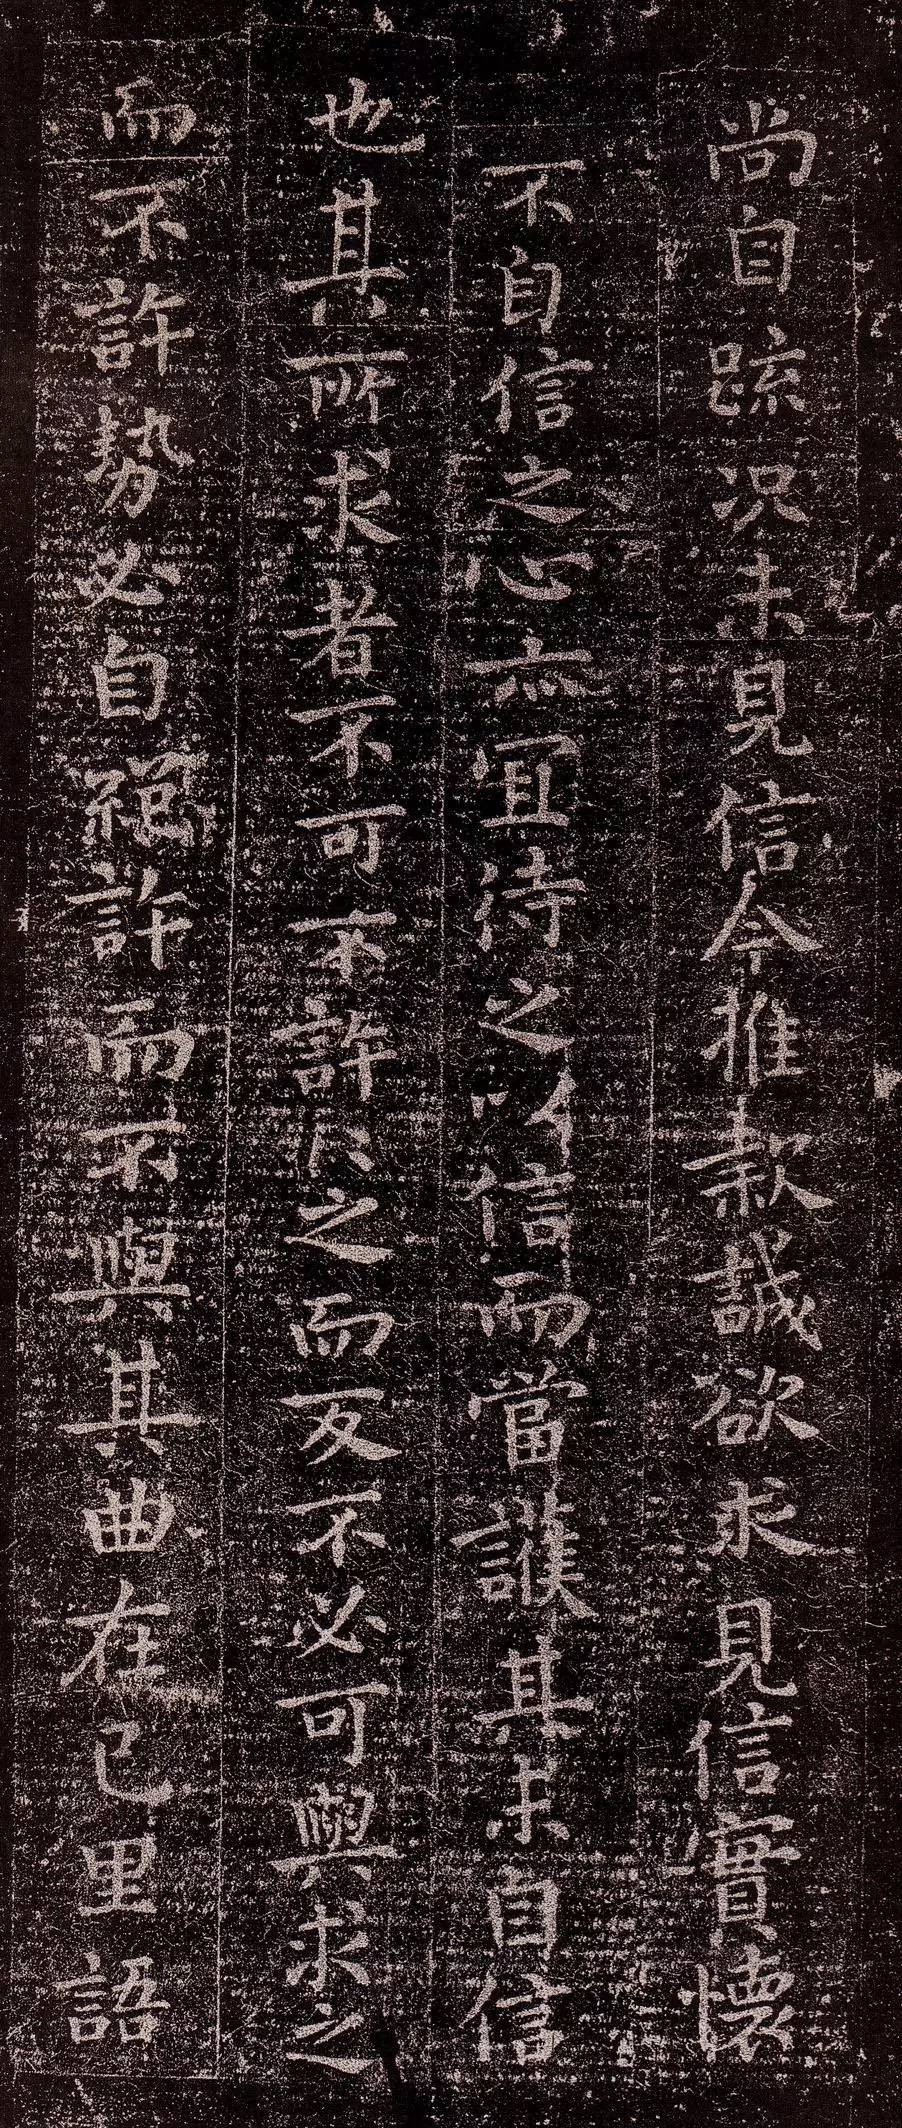 尚自疏況未見信今推款誠欲求見信實懷
不自信之心亦宜待之以信而當護其未自信
也其所求者不可不許許之而反不必可與求之
而不許勢必自絕許而不與其曲在己里語